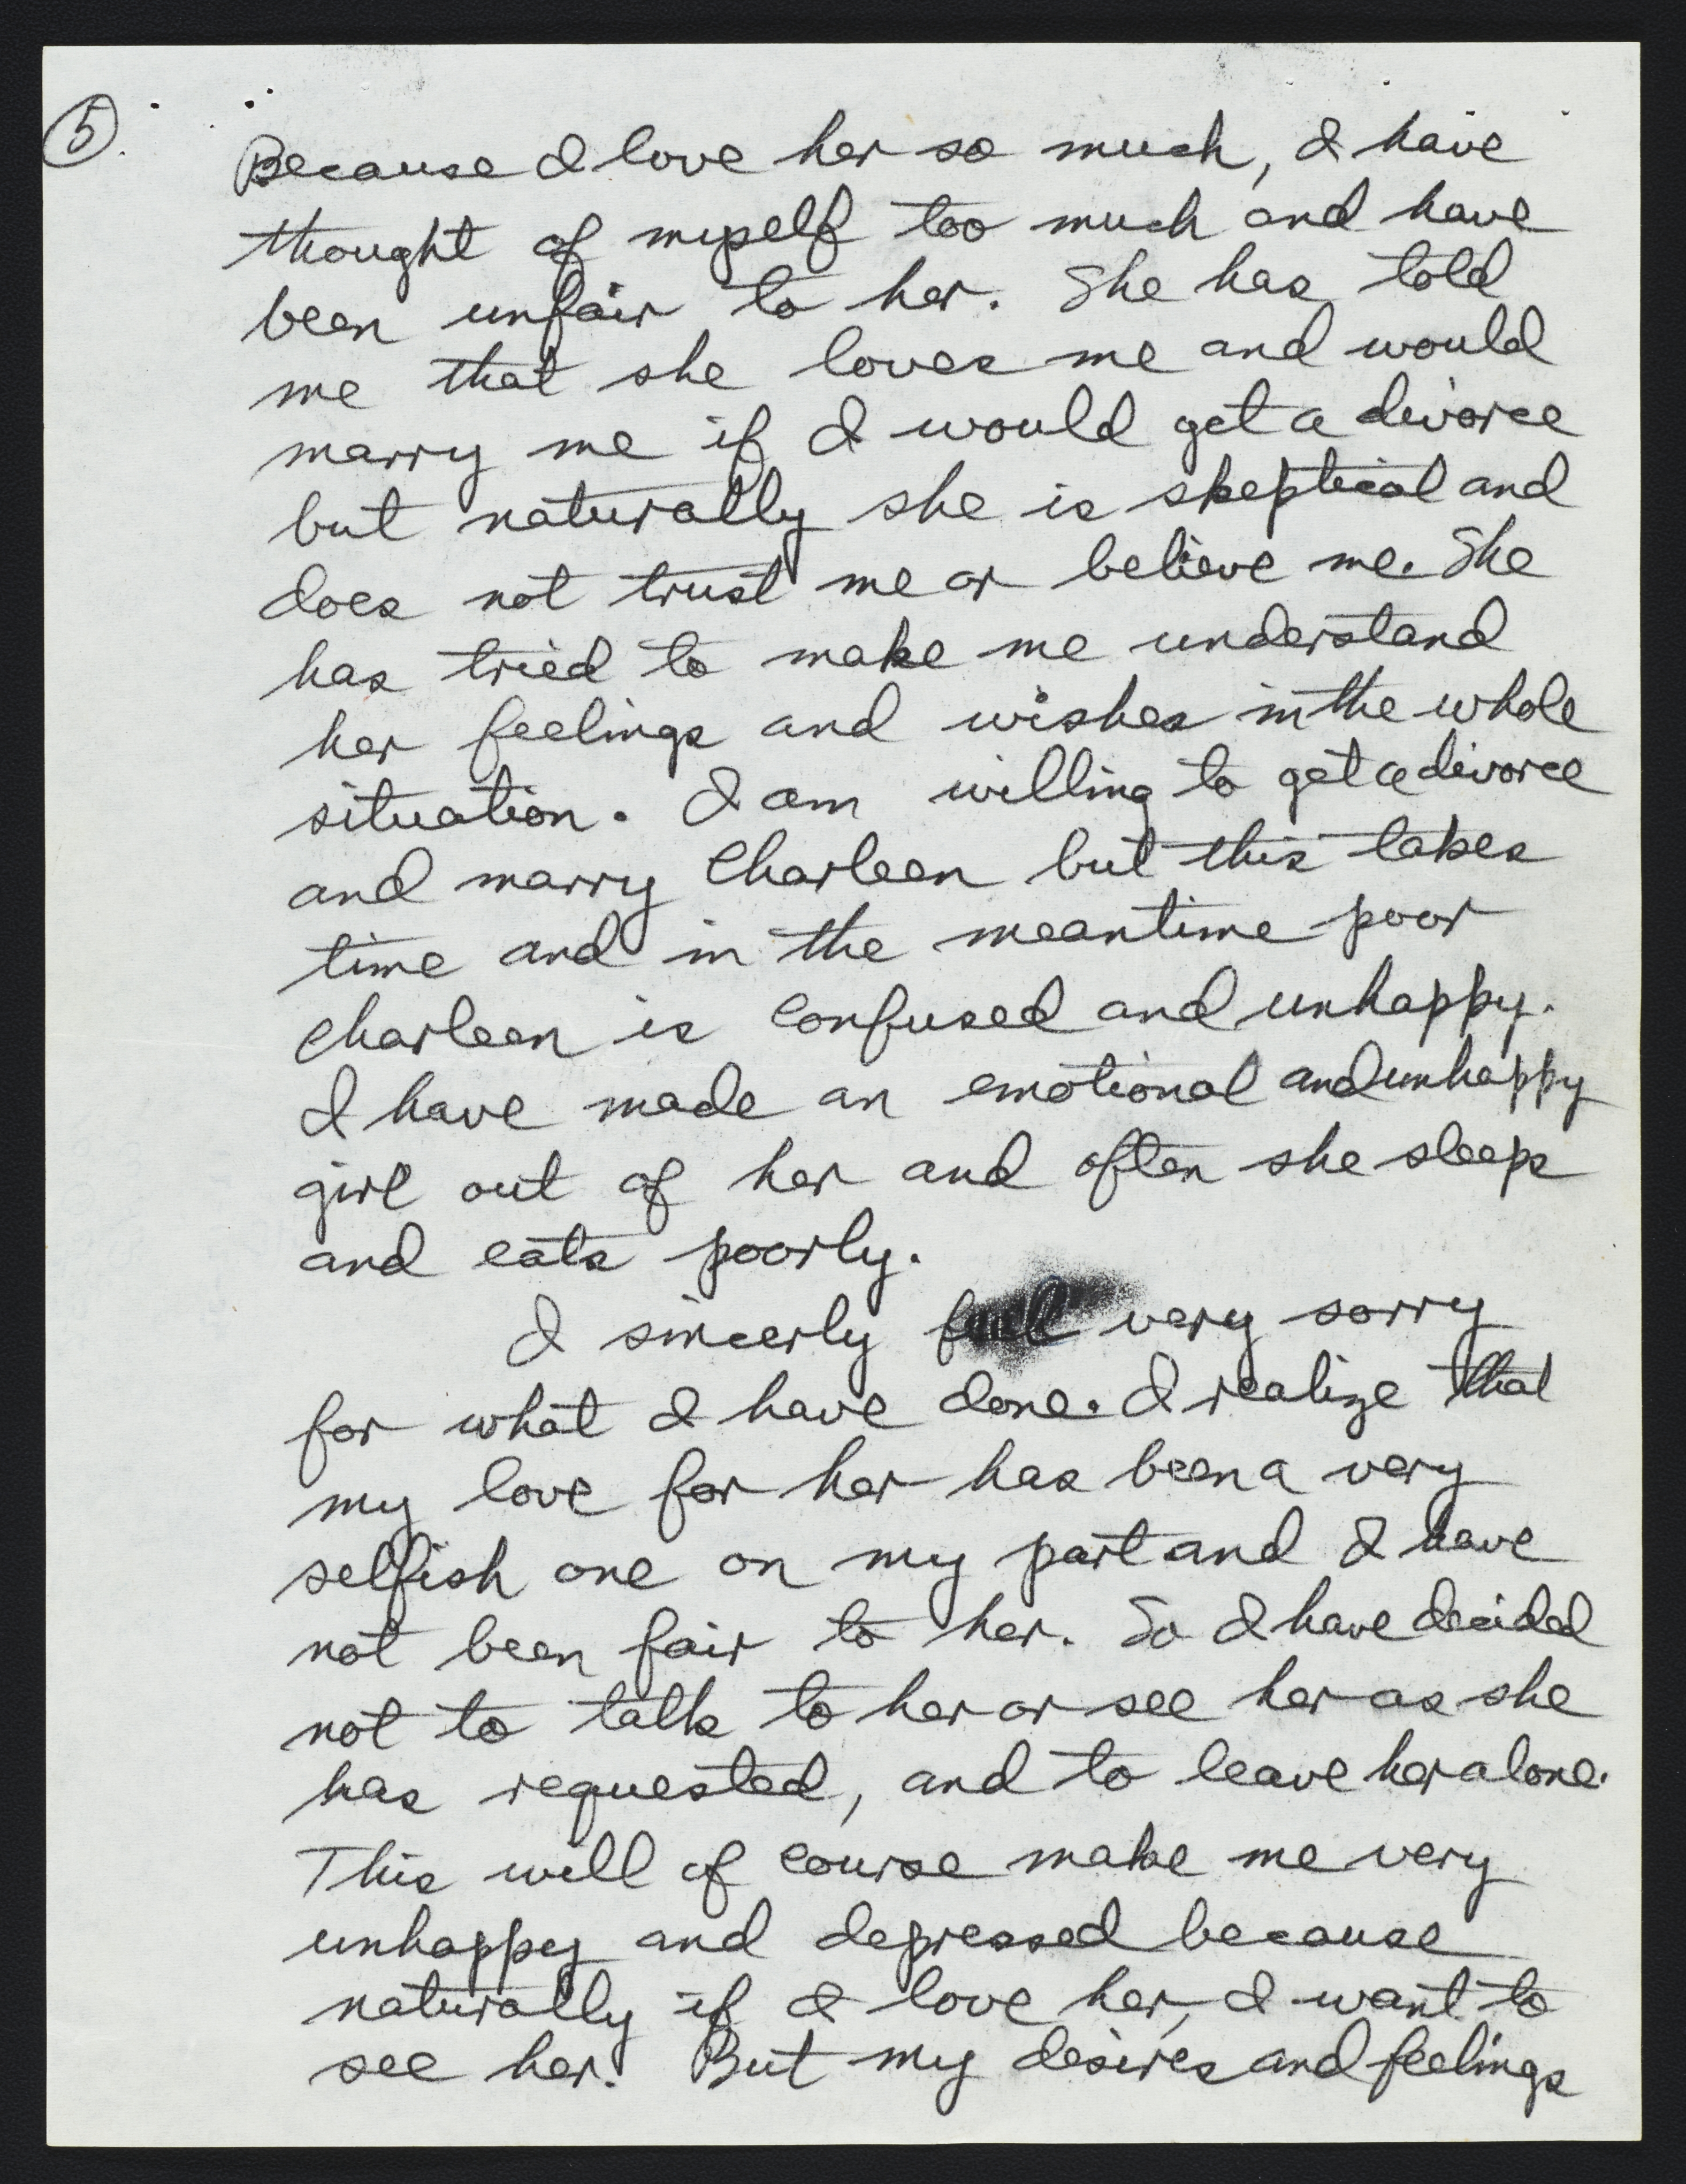 5
Because I love her so much, I have
thought of myself too much and have
been unfair to her. She has told
me that she loves me and would
marry me if I would get a divorce
but naturally she is skeptical and
does not trust me or believe me. She
has tried to make me understand
her feelings and wishes in the whole
situation. I am willing to get a divorce
and marry Charleen but this takes
time and in the meantime poor
Charleen is confused and unhappy.
I have made an emotional and unhappy
girl out of her and often she sleeps
and eats poorly.
I sincerly feel very sorry
for what I have done. I realize that
my love for her has been a very
selfish one on my part and I have
not been fair to her. So I have decided
not to talk to her or see her as she
has requested, and to leave her alone.
This will of course make me very
unhappy and depressed because
naturally if I love her, I want to
see her. But my desires and feelings